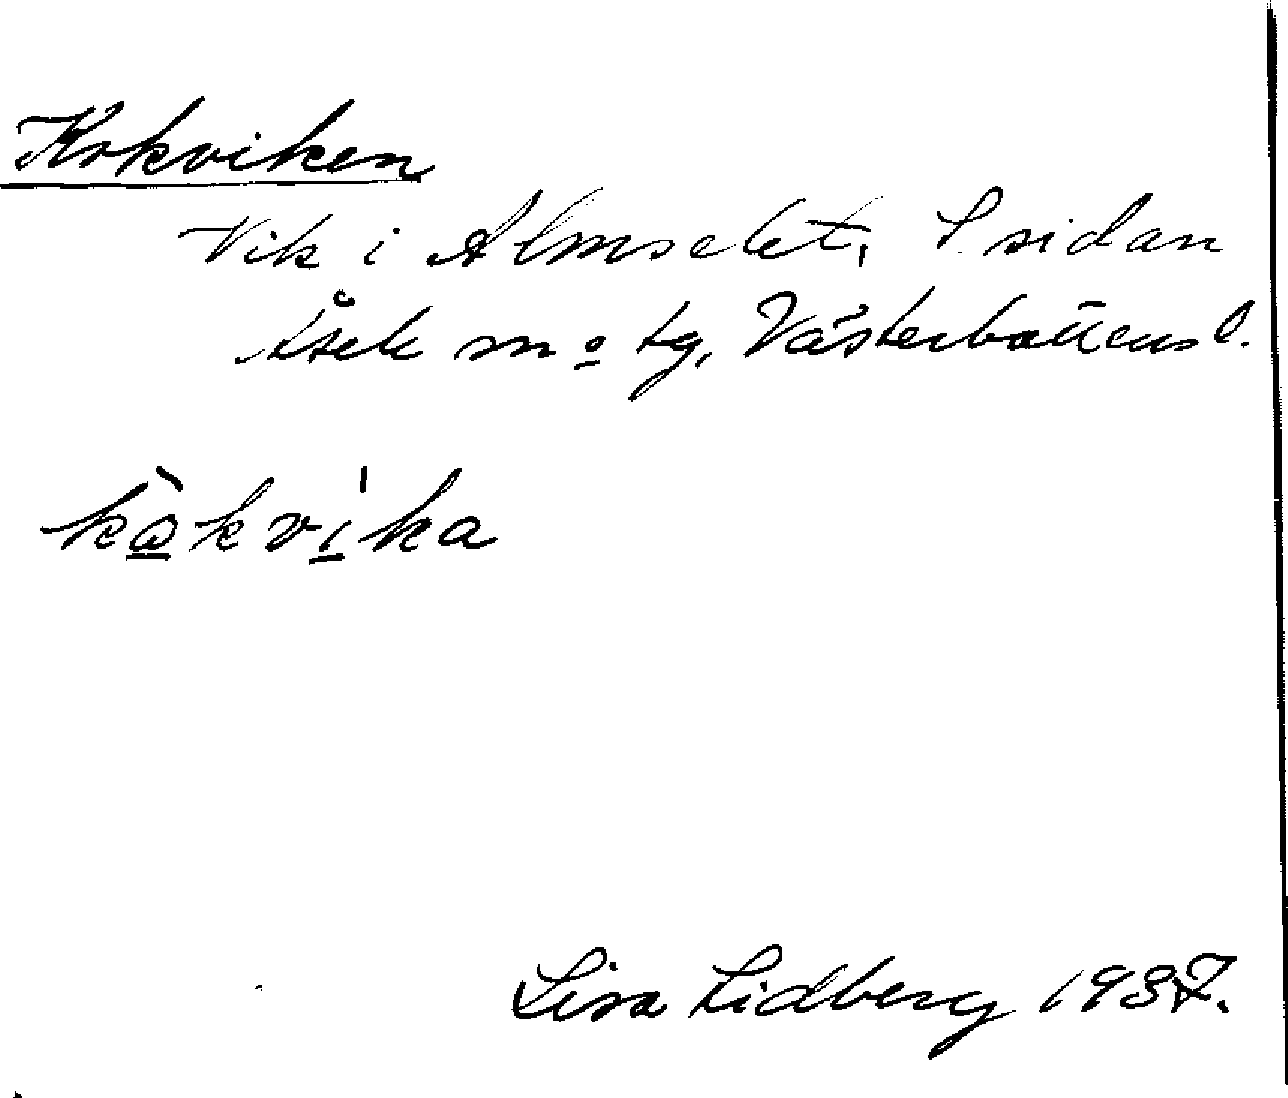 Kokviken
Vik i Almselet, S sidan
Åsele sn o tg, Västerbottens l.
kòkvi'ka
Lisa Lidberg 1937.